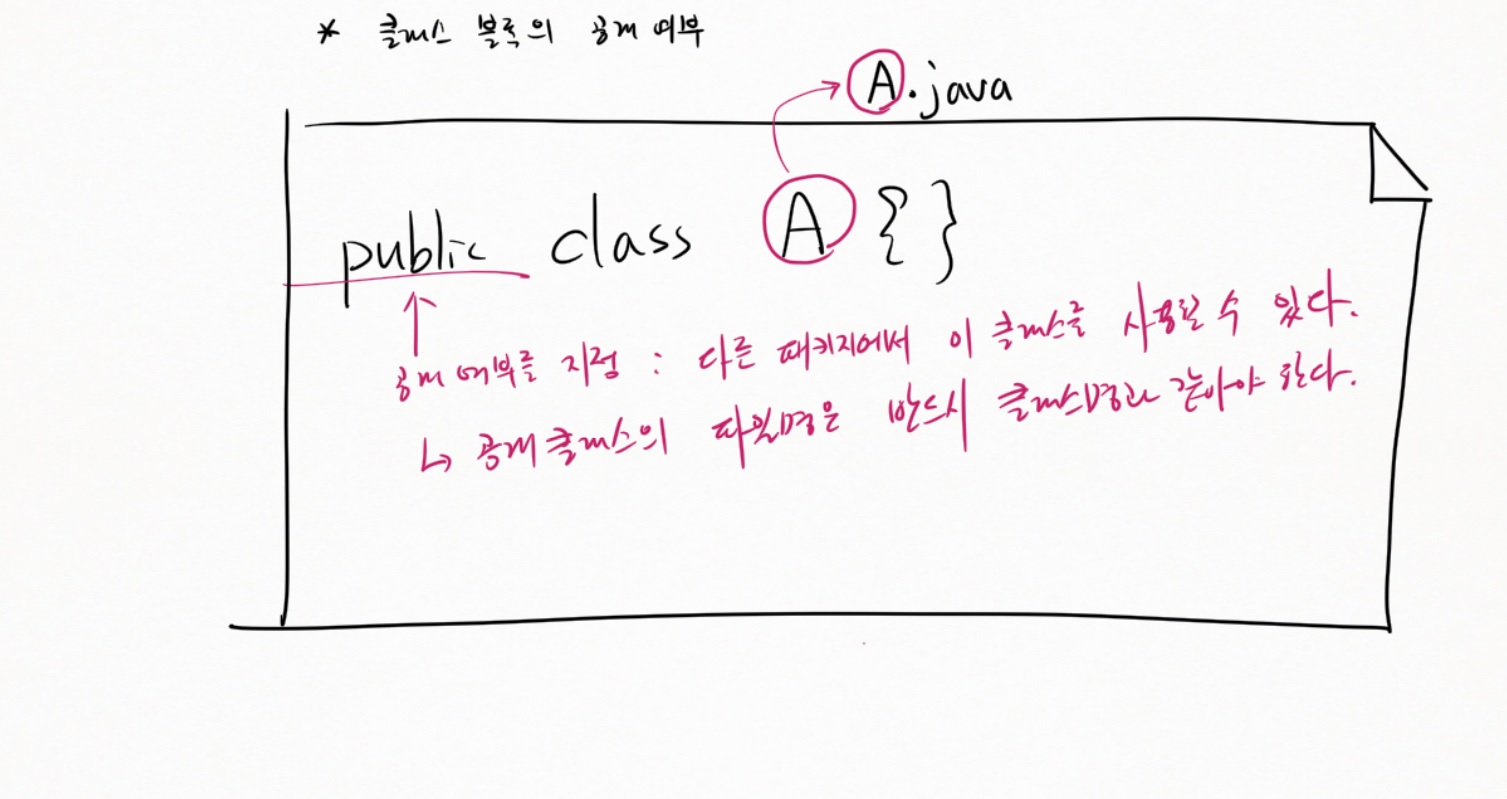 * 클래스 블록의 공개 여부
A.java
public class A {}
공개 여부를 지정 : 다른 패키지에서 이 클래스를 사용할 수 있다.
↳ 공개 클래스의 파일명은 반드시 클래스명과 같아야 한다.